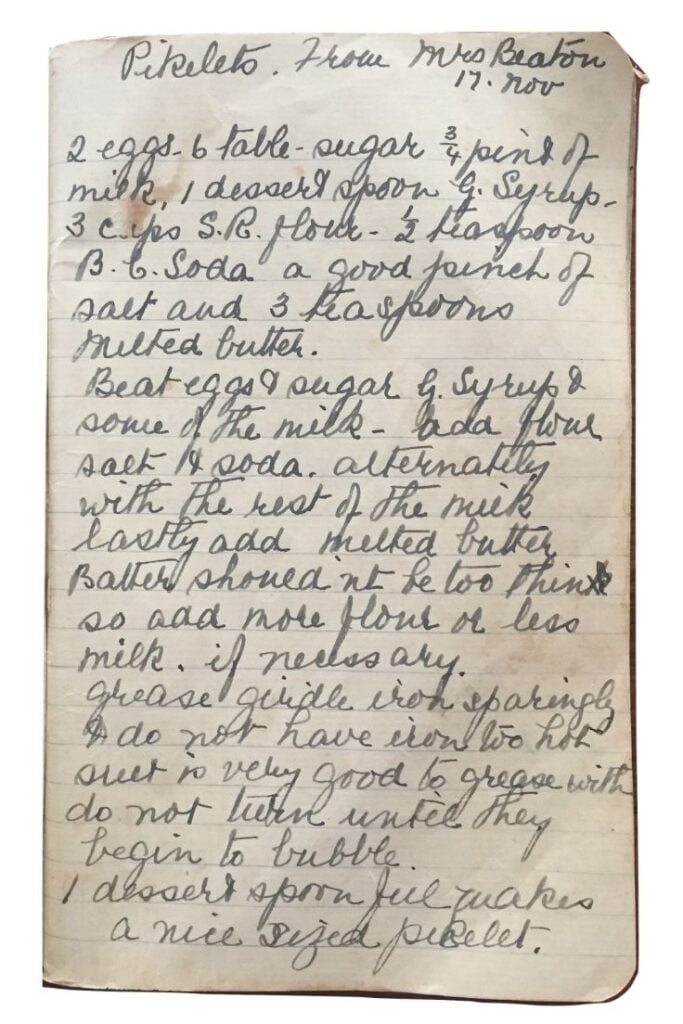 Pikelets. From Mrs Beaton
17. Nov
2 eggs - 6 table - sugar 3/4 pint of
milk, 1 dessert spoon G. Syrup -
3 cups S.R. flour - 1/2 teaspoon
B. C. Soda a good pinch of
salt and 3 teaspoons
melted butter.
Beat eggs & sugar G. Syrup &
some of the milk - add flour
salt & soda. alternately
with the rest of the milk
lastly add melted butter
Batter should'nt be too thin
so add more flour or less
milk. if necessary.
grease girdle iron sparingly
& do not have iron too hot
suet is very good to grease with
do not turn until they
begin to bubble.
1 dessert spoon ful makes
a nice sized pikelet.